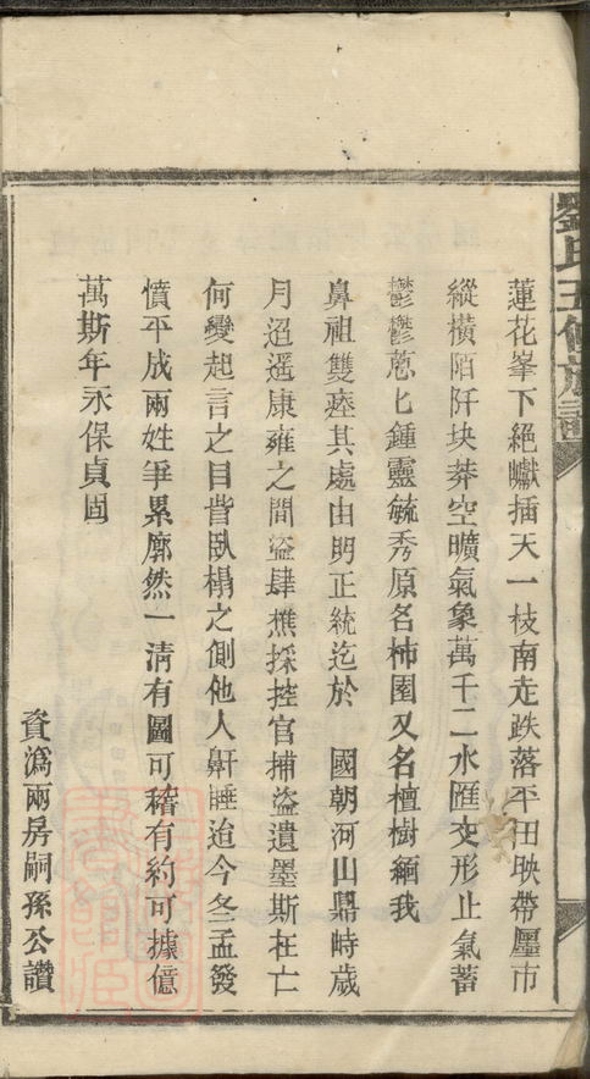 劉氏五修族譜
蓮花峯下絕巘插天一枝南走跌落平田映帶廛市
縱橫陌阡坱莽空曠氣象萬千二水匯交形止氣蓄
鬱鬱蔥匕鍾靈毓秀原名柿園又名檀樹緬我
鼻祖雙瘞其處由明正統迄於　國朝河山鼎峙歲
月迢遥康雍之間盜肆樵採控官捕盜遺墨斯在亡
何變起言之目眥臥榻之側他人鼾睡迨今冬孟發
憤平成兩姓爭累廓然一清有圖可稽有約可據億
萬斯年永保貞固
資潙兩房嗣孫公讚